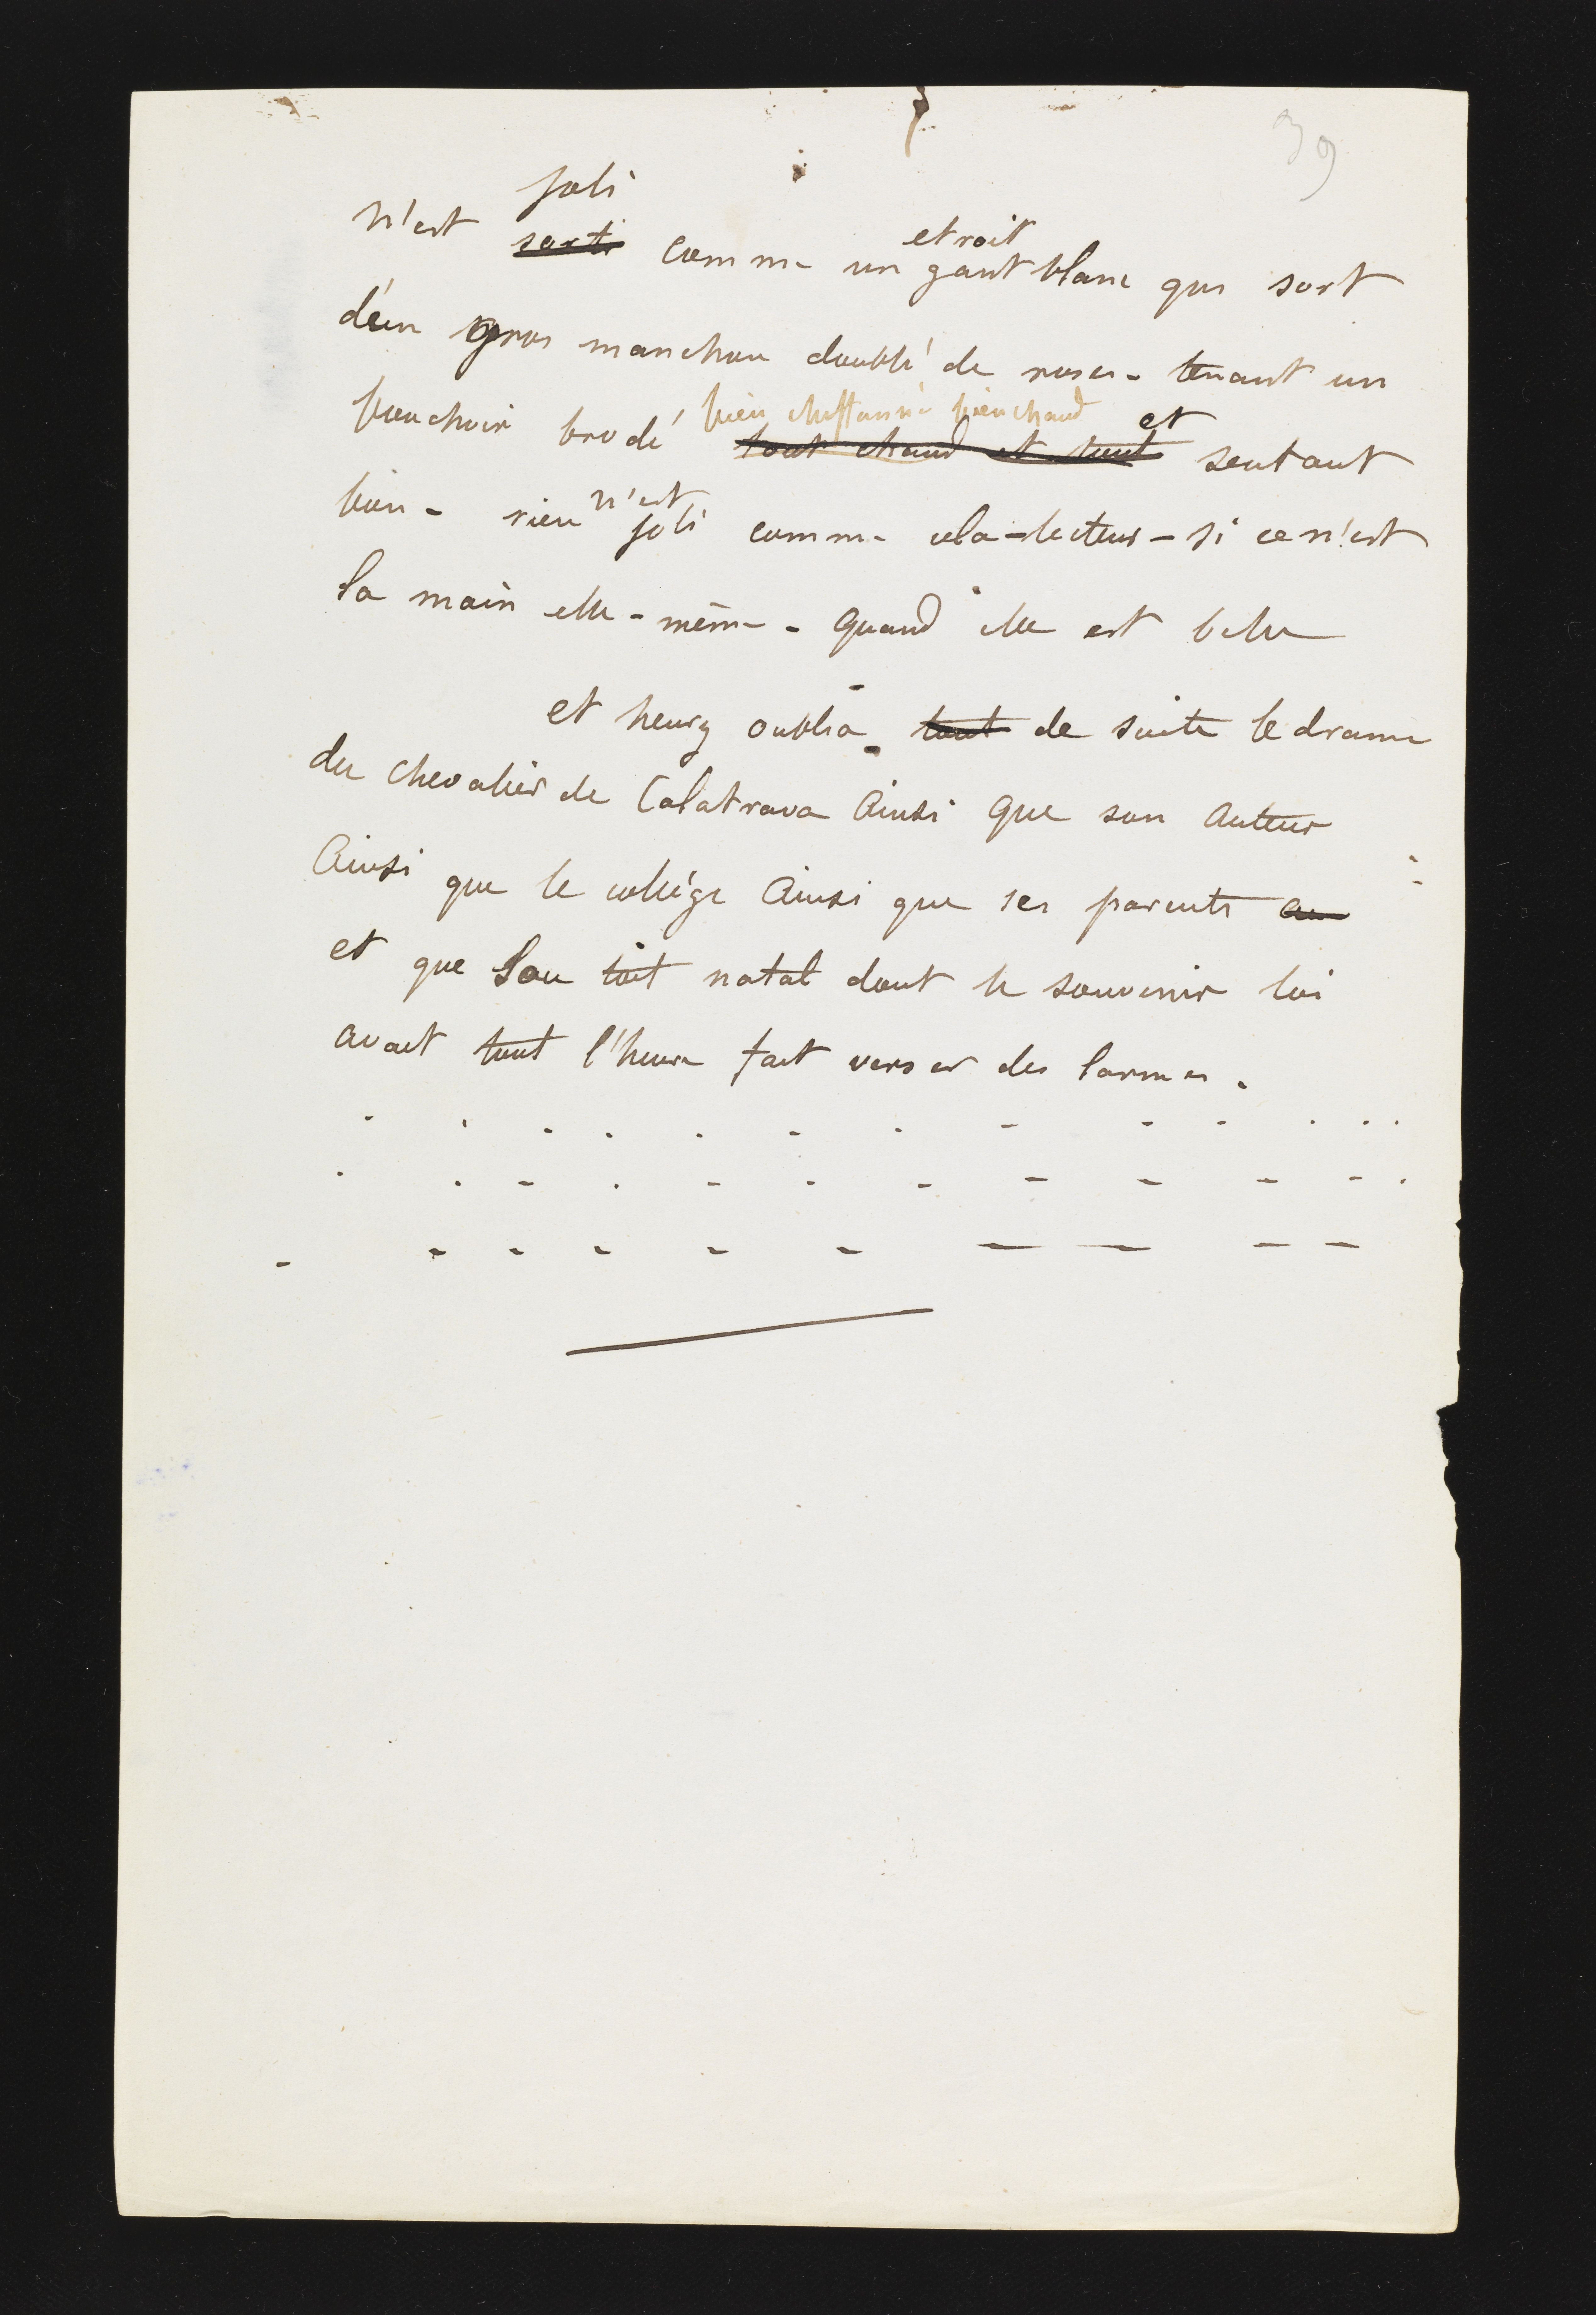 39
joli
n'est sorti comme un gant blanc qui sort
etroit
d'un gros manchon doublé de roses - tenant un
bien chiffonné bien chaud et
mouchoir brodé tout chaud et tout sentant
bon - rien n'est joli comme cela - lecteur - si ce n'est
la main elle-même - quand elle est belle
et henry oublia tout de suite le drame
du chevalier de Calatrava Ainsi que son auteur
Ainsi que le collège Ainsi que ses parents au
et que son toit natal dont le souvenir lui
avait tout l'heure fait verser des larmes.